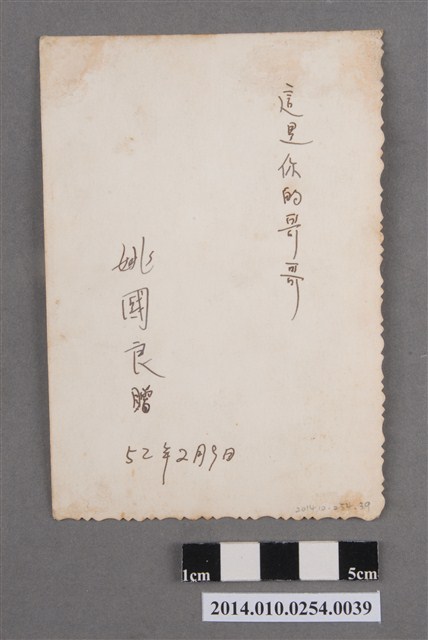 這是你的哥哥
姚國良贈
52年2月9日
2014.10.254.39
1cm
5cm
2014.010.0254.0039